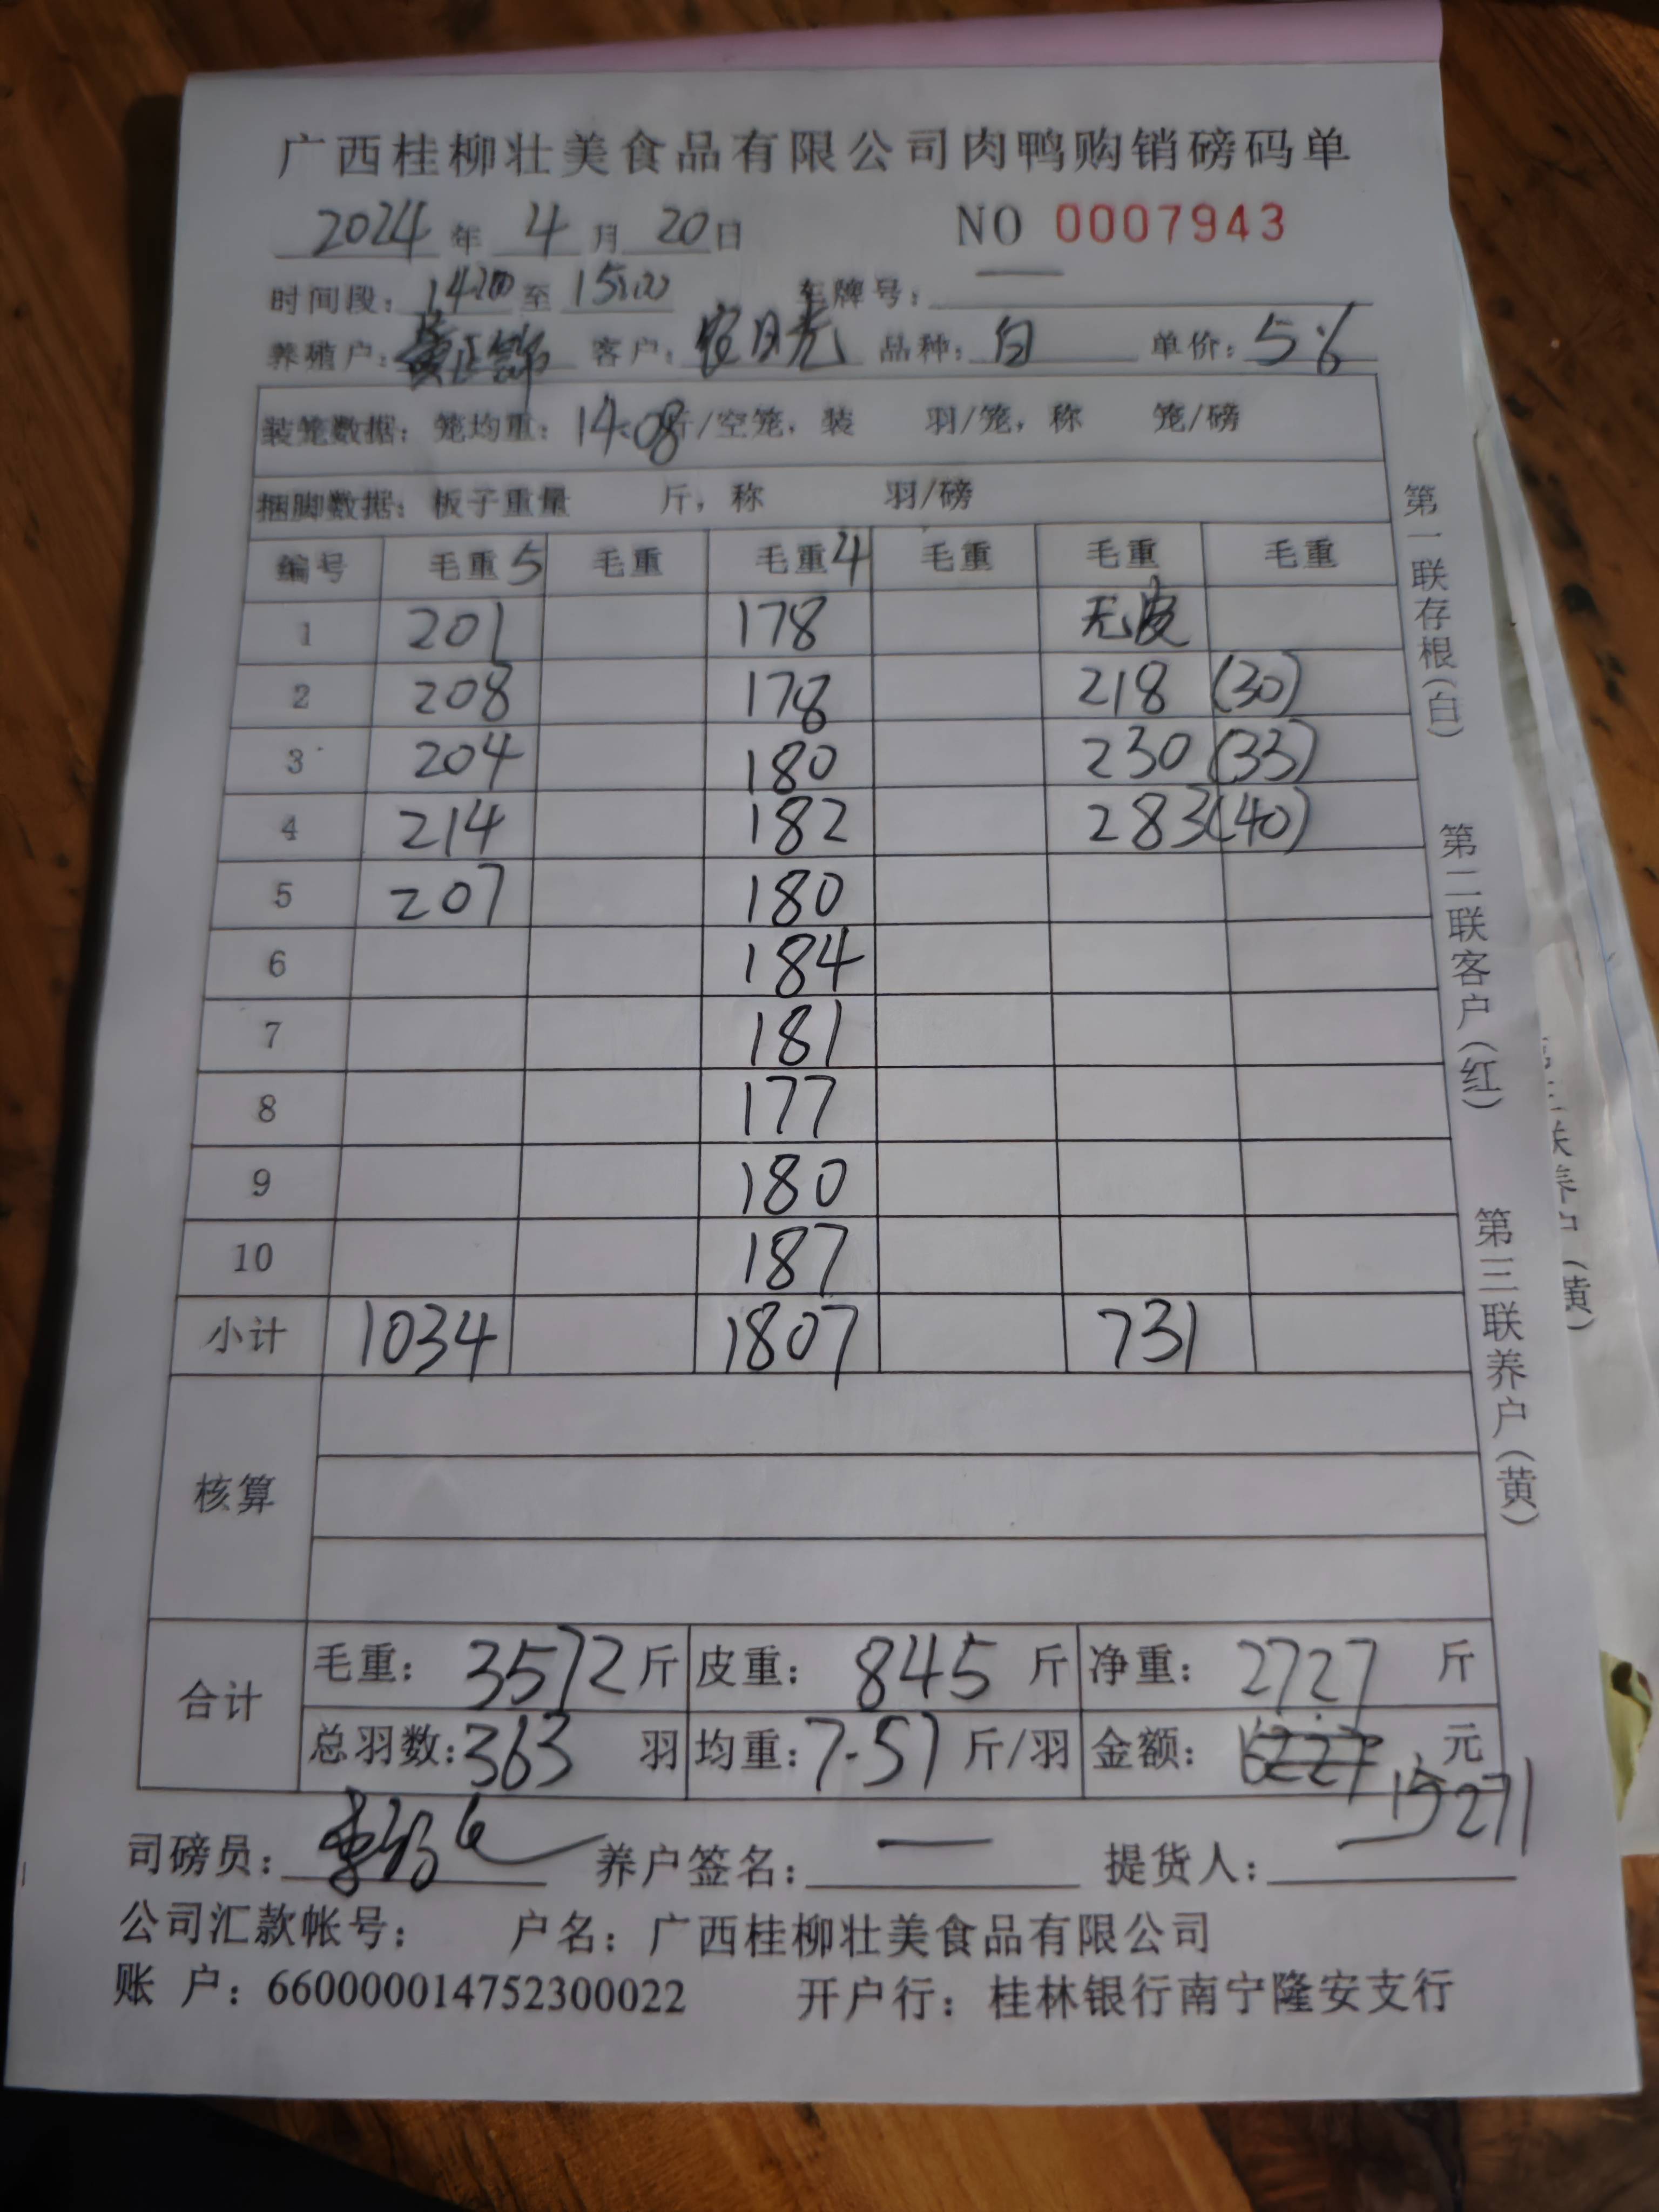 广西桂柳壮美食品有限公司肉鸭购销磅码单
2024年 4月20日 NO 0007943
时间段：14:00至15:00 车牌号：—
养殖户： 客户： 品种：白 单价：5.6
装笼数据：笼均重：14.08斤/空笼，装 羽/笼，称 笼/磅
捆脚数据：板子重量 斤，称 羽/磅
编号 毛重5 毛重 毛重4 毛重 毛重 毛重
1 201 178 无皮
2 208 178 218 (30)
3 204 180 230 (33)
4 214 182 283 (40)
5 207 180
6 184
7 181
8 177
9 180
10 187
小计 1034 1807 731
核算
合计 毛重：3572斤 皮重：845斤 净重：2727斤
总羽数：363羽 均重：7.51斤/羽 金额： 元
15271
司磅员： 养户签名：— 提货人：
公司汇款帐号： 户名：广西桂柳壮美食品有限公司
账 户：660000014752300022 开户行：桂林银行南宁隆安支行
第一联存根（白）
第二联客户（红）
第三联养户（黄）